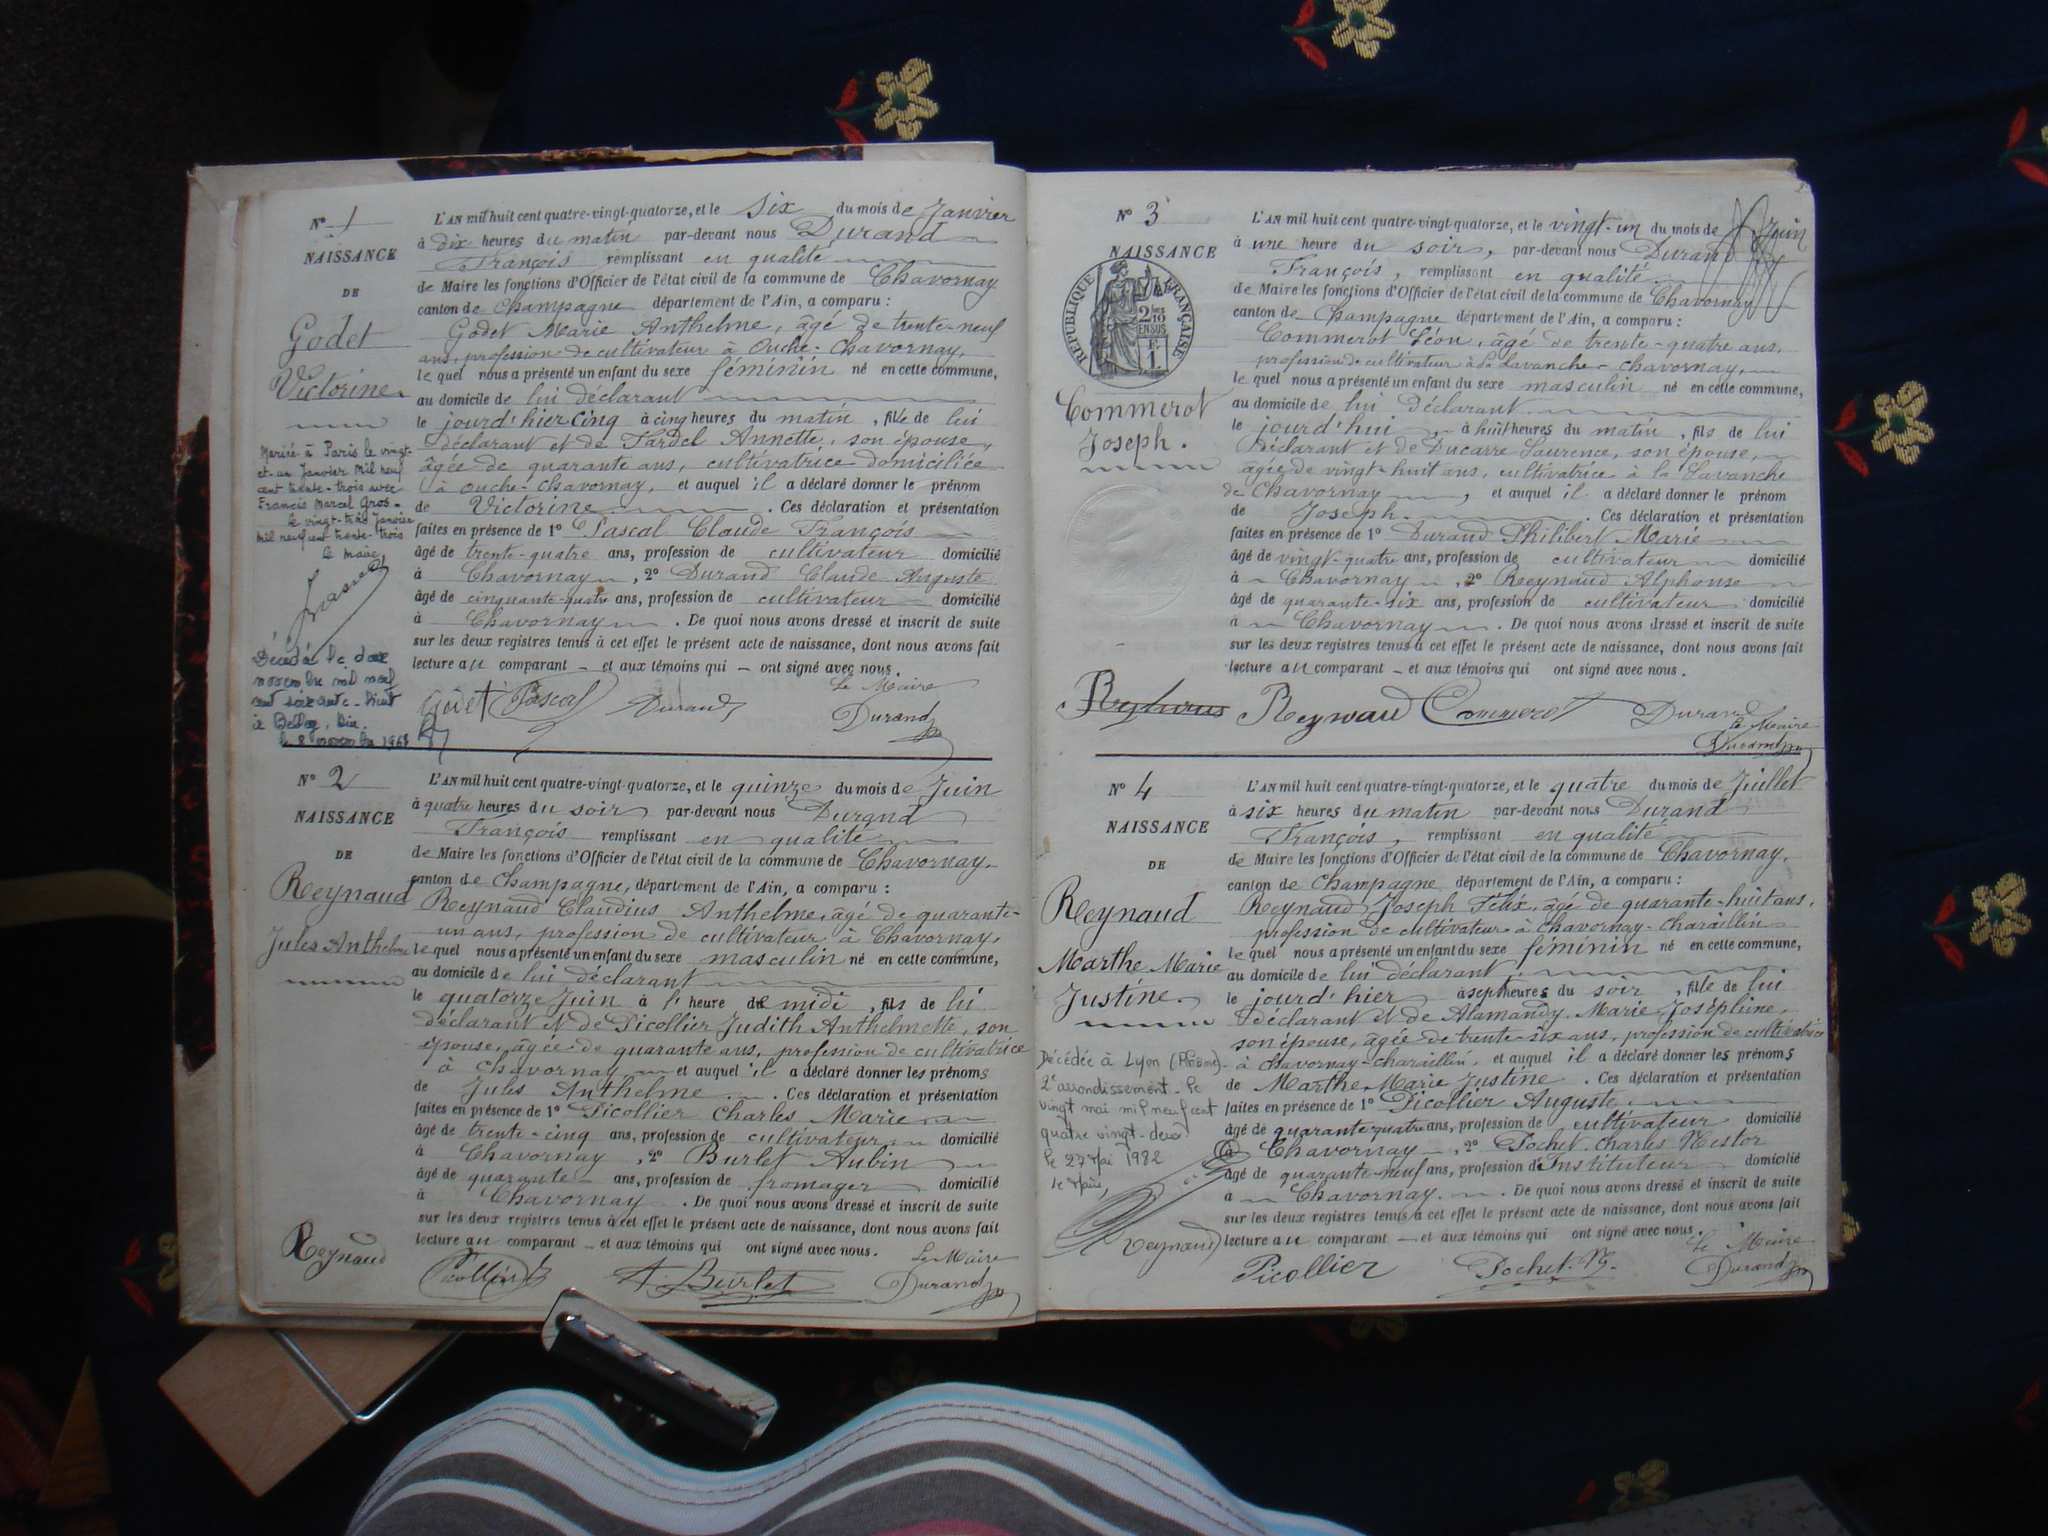 N° 1
NAISSANCE
DE
Godet
Victorine.
Marié à Paris le vingt-
et-un Janvier mil neuf
cent trente-trois avec
Francis Marcel Gros.
le vingt-trois Janvier
mil neuf cent trente-trois
le maire,
Décédée le deux
novembre mil neuf
cent soixante-huit
à Belley, Ain.
le 8 novembre 1968
L'AN mil huit cent quatre-vingt-quatorze, et le six du mois de Janvier
à dix heures du matin par-devant nous Durand
François remplissant en qualité
de Maire les fonctions d'Officier de l'état civil de la commune de Chavornay
canton de Champagne département de l'Ain, a comparu :
Godet Marie Anthelme, âgé de trente-neuf
ans, profession de cultivateur à Ouche-Chavornay,
le quel nous a présenté un enfant du sexe féminin né en cette commune,
au domicile de lui déclarant
le jourd'hier cinq à cinq heures du matin, fille de lui
déclarant et de Tardel Annette, son épouse,
âgée de quarante ans, cultivatrice domiciliée
à Ouche-Chavornay, et auquel il a déclaré donner le prénom
de Victorine. Ces déclaration et présentation
faites en présence de 1° Pascal Claude François
âgé de trente-quatre ans, profession de cultivateur domicilié
à Chavornay, 2° Durand Claude Auguste
âgé de cinquante-quatre ans, profession de cultivateur domicilié
à Chavornay. De quoi nous avons dressé et inscrit de suite
sur les deux registres tenus à cet effet le présent acte de naissance, dont nous avons fait
lecture au comparant et aux témoins qui ont signé avec nous.
Godet Pascal Durand Le Maire
Durand
N° 2
NAISSANCE
DE
Reynaud
Jules Anthelme
L'AN mil huit cent quatre-vingt-quatorze, et le quinze du mois de Juin
à quatre heures du soir par-devant nous Durand
François remplissant en qualité
de Maire les fonctions d'Officier de l'état civil de la commune de Chavornay,
canton de Champagne, département de l'Ain, a comparu :
Reynaud Claudius Anthelme, âgé de quarante-
un ans, profession de cultivateur à Chavornay,
le quel nous a présenté un enfant du sexe masculin né en cette commune,
au domicile de lui déclarant
le quatorze Juin à l'heure de midi, fils de lui
déclarant et de Picollier Judith Anthelmette, son
épouse, âgée de quarante ans, profession de cultivatrice
à Chavornay et auquel il a déclaré donner les prénoms
de Jules Anthelme. Ces déclaration et présentation
faites en présence de 1° Picollier Charles Marie
âgé de trente-cinq ans, profession de cultivateur domicilié
à Chavornay, 2° Burlet Aubin
âgé de quarante ans, profession de fromager domicilié
à Chavornay. De quoi nous avons dressé et inscrit de suite
sur les deux registres tenus à cet effet le présent acte de naissance, dont nous avons fait
lecture au comparant et aux témoins qui ont signé avec nous.
Reynaud Picollier A. Burlet Le Maire
Durand
N° 3
NAISSANCE
RÉPUBLIQUE FRANÇAISE
2/10
EN SUS
F.
1
Commerot
Joseph.
L'AN mil huit cent quatre-vingt-quatorze, et le vingt-un du mois de Juin
à une heure du soir, par-devant nous Durand
François, remplissant en qualité
de Maire les fonctions d'Officier de l'état civil de la commune de Chavornay
canton de Champagne département de l'Ain, a comparu :
Commerot Léon, âgé de trente-quatre ans,
profession de cultivateur à La Lavanche-Chavornay,
le quel nous a présenté un enfant du sexe masculin né en cette commune,
au domicile de lui déclarant
le jourd'hui, à huit heures du matin, fils de lui
déclarant et de Ducarre Laurence, son épouse,
âgée de vingt-huit ans, cultivatrice à la Lavanche
de Chavornay, et auquel il a déclaré donner le prénom
de Joseph. Ces déclaration et présentation
faites en présence de 1° Durand Philibert Marie
âgé de vingt-quatre ans, profession de cultivateur domicilié
à Chavornay, 2° Reynaud Alphonse
âgé de quarante-six ans, profession de cultivateur domicilié
à Chavornay. De quoi nous avons dressé et inscrit de suite
sur les deux registres tenus à cet effet le présent acte de naissance, dont nous avons fait
lecture au comparant et aux témoins qui ont signé avec nous.
Reynaud Commerot Durand Le Maire
Durand
N° 4
NAISSANCE
DE
Reynaud
Marthe Marie
Justine.
Décédée à Lyon (Rhône)
2e arrondissement. le
vingt mai mil neuf cent
quatre vingt-deux
le 27 Mai 1982
le Maire,
L'AN mil huit cent quatre-vingt-quatorze, et le quatre du mois de Juillet
à six heures du matin par-devant nous Durand
François, remplissant en qualité
de Maire les fonctions d'Officier de l'état civil de la commune de Chavornay,
canton de Champagne département de l'Ain, a comparu :
Reynaud Joseph Félix, âgé de quarante-huit ans,
profession de cultivateur à Chavornay-Charaillin
le quel nous a présenté un enfant du sexe féminin né en cette commune,
au domicile de lui déclarant
le jourd'hier à sept heures du soir, fille de lui
déclarant et de Alamandy Marie Joséphine,
son épouse, âgée de trente-six ans, profession de cultivatrice
à Chavornay-Charaillin, et auquel il a déclaré donner les prénoms
de Marthe Marie Justine. Ces déclaration et présentation
faites en présence de 1° Picollier Auguste
âgé de quarante-quatre ans, profession de cultivateur domicilié
à Chavornay, 2° Pochet Charles Nestor
âgé de quarante-neuf ans, profession d'Instituteur domicilié
à Chavornay. De quoi nous avons dressé et inscrit de suite
sur les deux registres tenus à cet effet le présent acte de naissance, dont nous avons fait
lecture au comparant et aux témoins qui ont signé avec nous.
Reynaud Picollier Pochet Le Maire
Durand